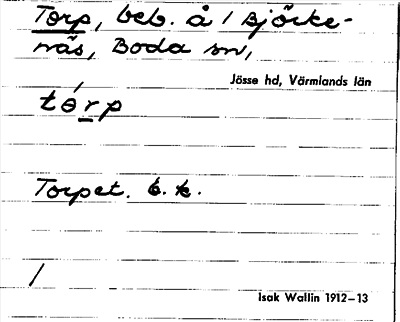 Torp, beb. å 1 Björke-
näs, Boda sn,
Jösse hd, Värmlands län
tórp
Torpet. b. k.
/
Isak Wallin 1912–13